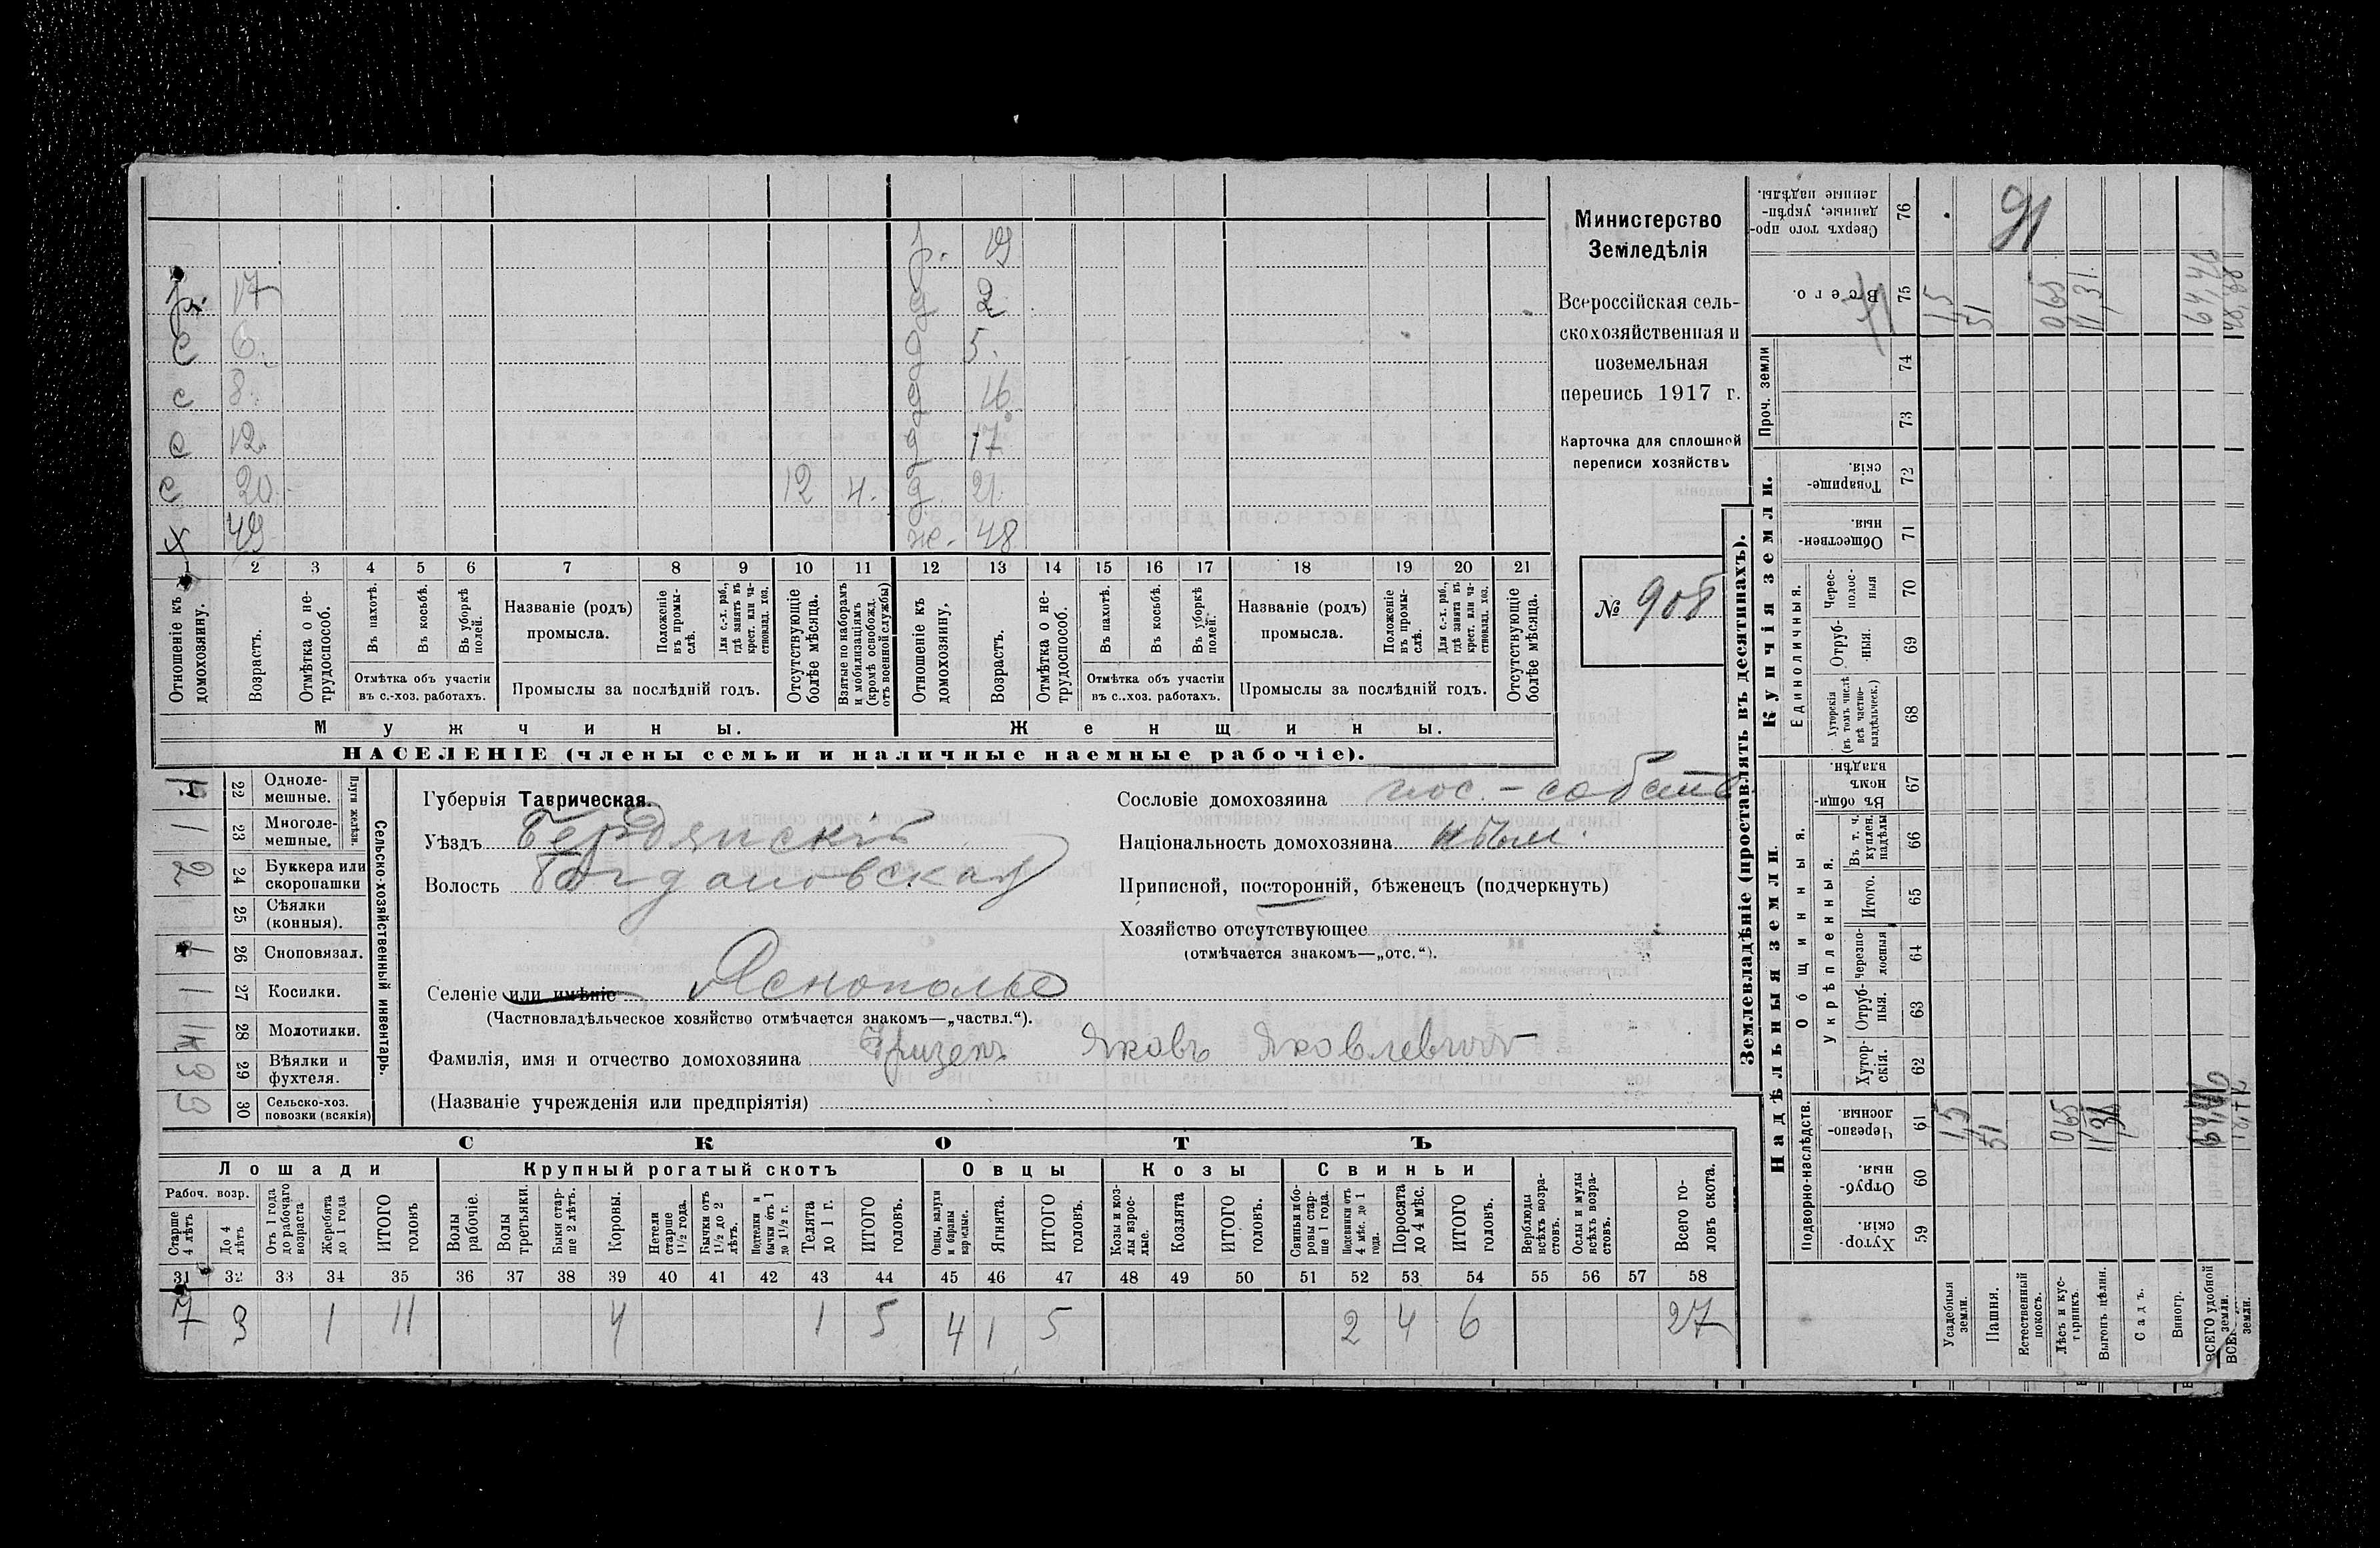 р. 19
р. 17 д 2
с 6. д 5.
с 8. д 16
с 12. д 17
с 20. 12 н. д. 21.
х 49 же. 48
1 2 3 4 5 6 7 8 9 10 11 12 13 14 15 16 17 18 19 20 21
Отношеніе къ домохозяину.
Возрастъ.
Отмѣтка о не-трудоспособ.
Въ пахотѣ.
Въ косьбѣ.
Въ уборкѣ полей.
Отмѣтка объ участіи
въ с.-хоз. работахъ.
Названіе (родъ)
промысла.
Положеніе въ промы-слѣ.
Для с.-х. раб., гдѣ занятъ въ крест. или ча-стновлад. хоз.
Промыслы за послѣдній годъ.
Отсутствующіе болѣе мѣсяца.
Взятые по наборамъ и мобилизаціямъ (кромѣ освобожд. отъ военной службы)
Отношеніе къ домохозяину.
Возрастъ.
Отмѣтка о не-трудоспособ.
Въ пахотѣ.
Въ косьбѣ.
Въ уборкѣ полей.
Отмѣтка объ участіи
въ с.-хоз. работахъ.
Названіе (родъ)
промысла.
Положеніе въ промы-слѣ.
Для с.-х. раб., гдѣ занята въ крест. или ча-стновлад. хоз.
Промыслы за послѣдній годъ.
Отсутствующіе болѣе мѣсяца.
Мужчины.
Женщины.
НАСЕЛЕНІЕ (члены семьи и наличные наемные рабочіе).
Министерство
Земледѣлія
Всероссійская сель-
скохозяйственная и
поземельная
перепись 1917 г.
Карточка для сплошной
переписи хозяйствъ
№ 908
Сельско-хозяйственный инвентарь.
Плуги желѣзн.
22 Одноле-мешные.
1 23 Многоле-мешные.
2 24 Буккера или скоропашки
25 Сѣялки (конныя).
1 26 Сноповязал.
1 27 Косилки.
28 Молотилки.
29 Вѣялки и фухтеля.
3 30 Сельско-хоз. повозки (всякія)
Губернія Таврическая.
Уѣздъ Бердянскій
Волость Богдановская
Селеніе или имѣніе Яснополье
(Частновладѣльческое хозяйство отмѣчается знакомъ—„частвл.“).
Фамилія, имя и отчество домохозяина Фризенъ Яковъ Яковлевичъ
(Названіе учрежденія или предпріятія)
Сословіе домохозяина пос. - собств
Національность домохозяина нѣм.
Приписной, посторонній, бѣженецъ (подчеркнуть)
Хозяйство отсутствующее
(отмѣчается знакомъ—„отс.“).
СКОТЪ
Лошади Крупный рогатый скотъ Овцы Козы Свиньи
Рабоч. возр.
Старше 4 лѣтъ
До 4 лѣтъ
Отъ 1 года до рабочаго возраста
Жеребята до 1 года
ИТОГО головъ
Волы рабочіе.
Волы третьяки.
Быки стар-ше 2 лѣтъ.
Коровы.
Нетели старше 1½ года.
Бычки отъ 1½ до 2 лѣтъ.
Подтелки и бычки отъ 1 до 1½ г.
Телята до 1 г.
ИТОГО головъ.
Овцы, валухи и бараны взрослые.
Ягнята.
ИТОГО головъ.
Козы и коз-лы взрос-лые.
Козлята
ИТОГО головъ.
Свиньи и бо-ровы стар-ше 1 года.
Подсвинки отъ 4 мѣс. до 1 года.
Поросята до 4 мѣс.
ИТОГО головъ.
Верблюды всѣхъ возра-стовъ.
Ослы и мулы всѣхъ возра-стовъ.
Всего го-ловъ скота.
31 32 33 34 35 36 37 38 39 40 41 42 43 44 45 46 47 48 49 50 51 52 53 54 55 56 57 58
7 3 1 11 4 1 5 4 1 5 2 4 6 27
Землевладѣніе (проставлять въ десятинахъ).
Надѣльныя земли.
Купчія земли.
Проч. земли
Подворно-наслѣдств.
Общинныя.
Укрѣпленныя.
Единоличныя.
Сверхъ того про-данные, укрѣп-ленные надѣлы. 76
Всего. 75
74
73
Товарище-скія. 72
Обществен-ныя. 71
Черес-полос-ныя 70
Отруб-ныя. 69
Хуторскія (въ томъ числѣ всѣ частно-владѣльческ.) 68
Въ общи-номъ владѣн. 67
Въ т. ч. куплен. надѣлы 66
Итого. 65
Черезпо-лосныя 64
Отруб-ныя. 63
Хутор-скія. 62
Черезпо-лосныя. 61
Отруб-ныя. 60
Хутор-скія. 59
Усадебныя земли. 1,5 1,5
Пашня. 51 51
Естественный покосъ.
Лѣсъ и кус-тарникъ. 065 065
Выгонъ цѣлин. 11,31 11,31.
Садъ.
Виногр.
ВСЕГО удобной земли.
земли.